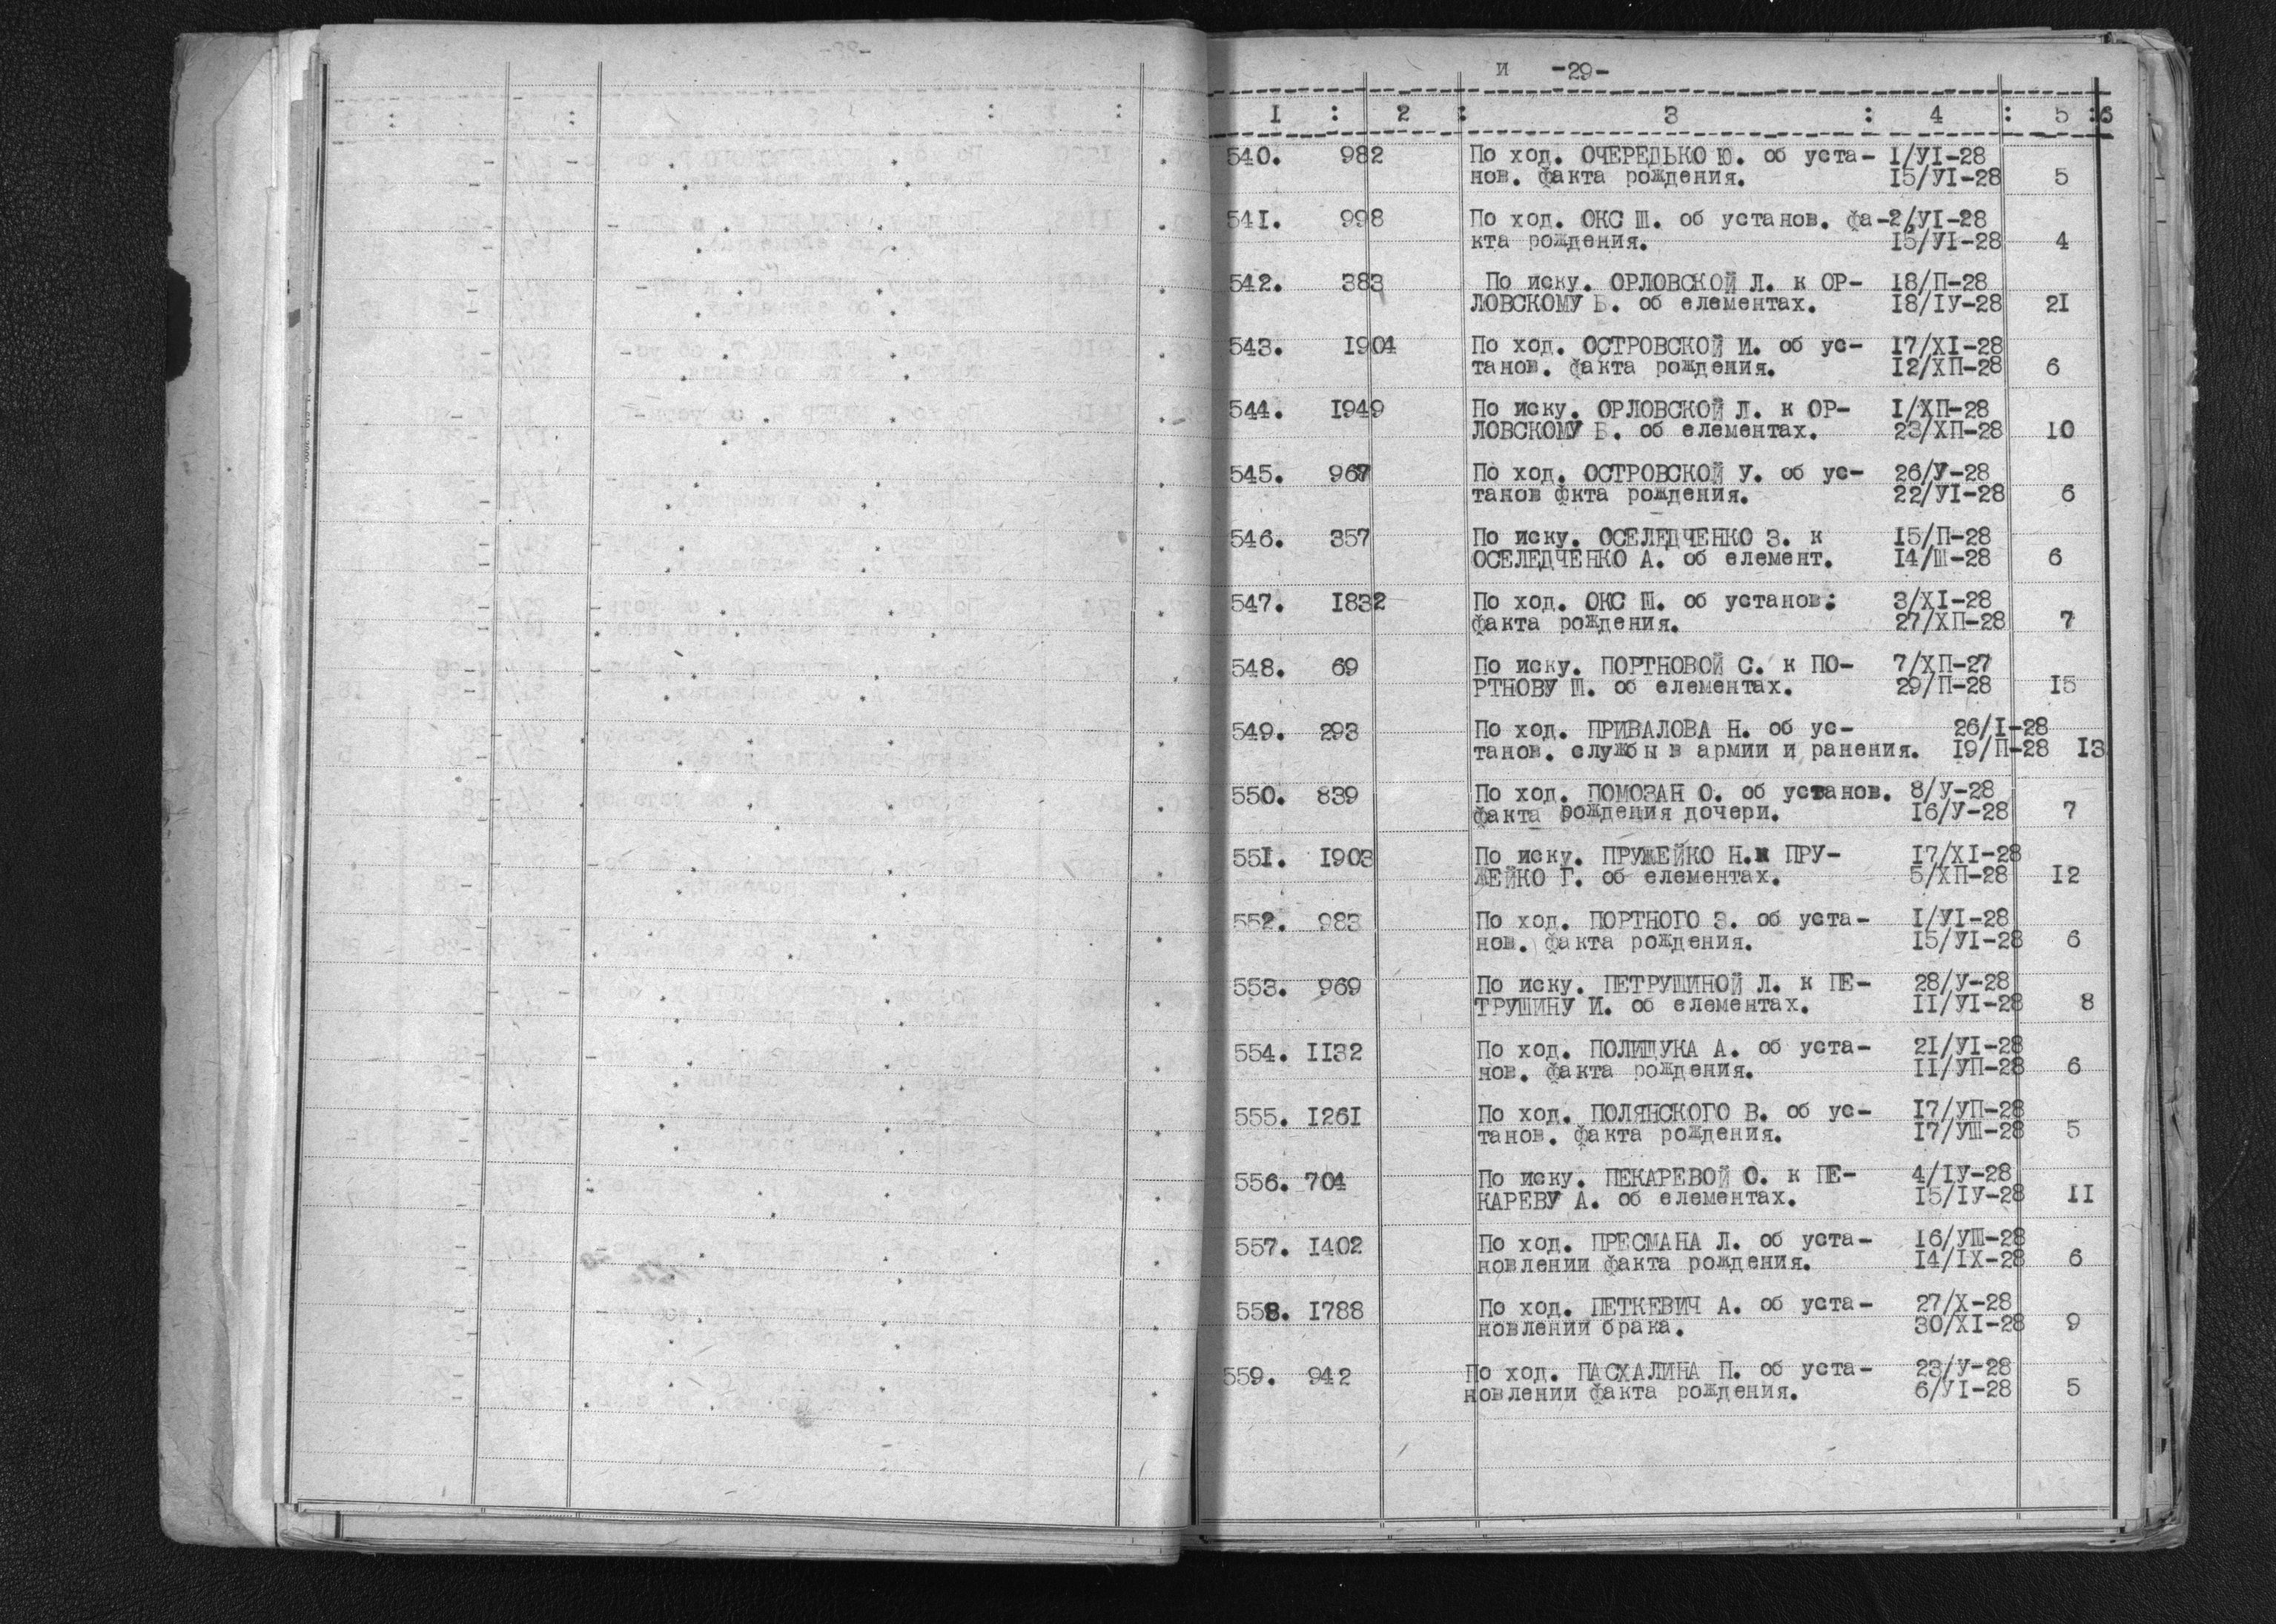 и -29-
I : 2 : 3 : 4 : 5 :6
540. 982 По ход. ОЧЕРЕДЬКО Ю. об уста- I/УI-28
нов. факта рождения. I5/УI-28 5
541. 998 По ход. ОКС Ш. об установ. фа-2/УI-28
кта рождения. I5/УI-28 4
542. 383 По иску. ОРЛОВСКОЙ Л. к ОР- I8/П-28
ЛОВСКОМУ Б. об елементах. I8/IУ-28 2I
543. I904 По ход. ОСТРОВСКОЙ И. об ус- I7/XI-28
танов. факта рождения. I2/ХП-28 6
544. I949 По иску. ОРЛОВСКОЙ Л. к ОР- I/ХП-28
ЛОВСКОМУ Б. об елементах. 23/ХП-28 I0
545. 967 По ход. ОСТРОВСКОЙ У. об ус- 26/У-28
танов фкта рождения. 22/УI-28 6
546. 357 По иску. ОСЕЛЕДЧЕНКО З. к I5/П-28
ОСЕЛЕДЧЕНКО А. об елемент. I4/Ш-28 6
547. I832 По ход. ОКС Ш. об установ: 3/XI-28
факта рождения. 27/ХП-28 7
548. 69 По иску. ПОРТНОВОЙ С. к ПО- 7/ХП-27
РТНОВУ Ш. об елементах. 29/П-28 I5
549. 293 По ход. ПРИВАЛОВА Н. об ус- 26/I-28
танов. службы в армии и ранения. I9/П-28 I3
550. 839 По ход. ПОМОЗАН О. об установ. 8/У-28
факта рождения дочери. I6/У-28 7
55I. I903 По иску. ПРУЖЕЙКО Н.к ПРУ- I7/XI-28
ЖЕЙКО Г. об елементах. 5/ХП-28 I2
552. 983 По ход. ПОРТНОГО З. об уста- I/УI-28
нов. факта рождения. I5/УI-28 6
553. 969 По иску. ПЕТРУШИНОЙ Л. к ПЕ- 28/У-28
ТРУШИНУ И. об елементах. II/УI-28 8
554. II32 По ход. ПОЛИЩУКА А. об уста- 2I/УI-28
нов. факта рождения. II/УП-28 6
555. I26I По ход. ПОЛЯНСКОГО В. об ус- I7/УП-28
танов. факта рождения. I7/УШ-28 5
556. 704 По иску. ПЕКАРЕВОЙ О. к ПЕ- 4/IУ-28
КАРЕВУ А. об елементах. I5/IУ-28 II
557. I402 По ход. ПРЕСМАНА Л. об уста- I6/УШ-28
новлении факта рождения. I4/IX-28 6
558. I788 По ход. ПЕТКЕВИЧ А. об уста- 27/X-28
новлении брака. 30/XI-28 9
559. 942 По ход. ПАСХАЛИНА П. об уста- 23/У-28
новлении факта рождения. 6/УI-28 5